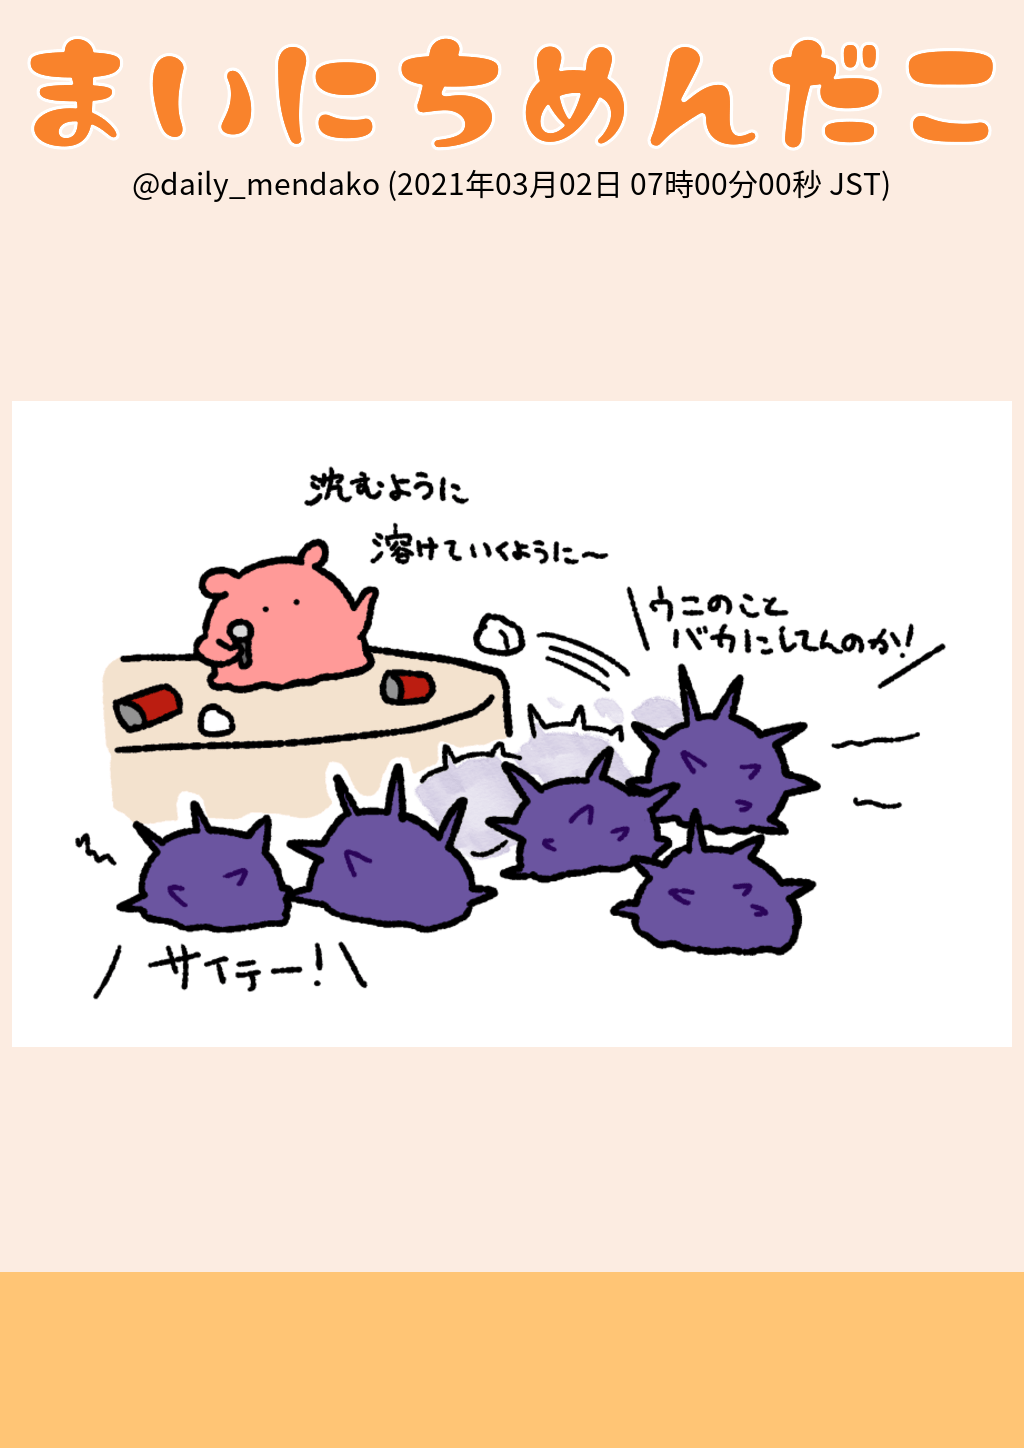 まいにちめんだこ
@daily_mendako (2021年03月02日 07時00分00秒 JST)
沈むように
溶けていくように〜
ウニのこと
バカにしてんのか!
サイテー!